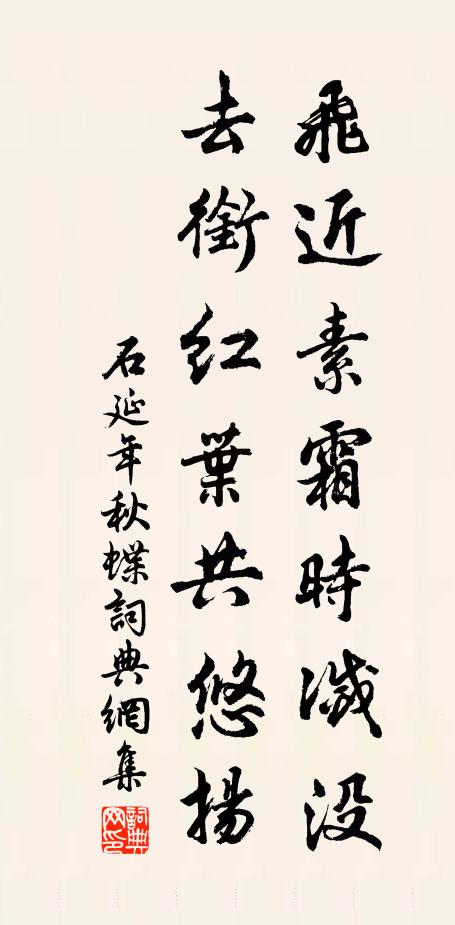 飛近素霜時滅沒
去銜紅葉共悠揚
石延年秋蝶詞典網集
詞典网印